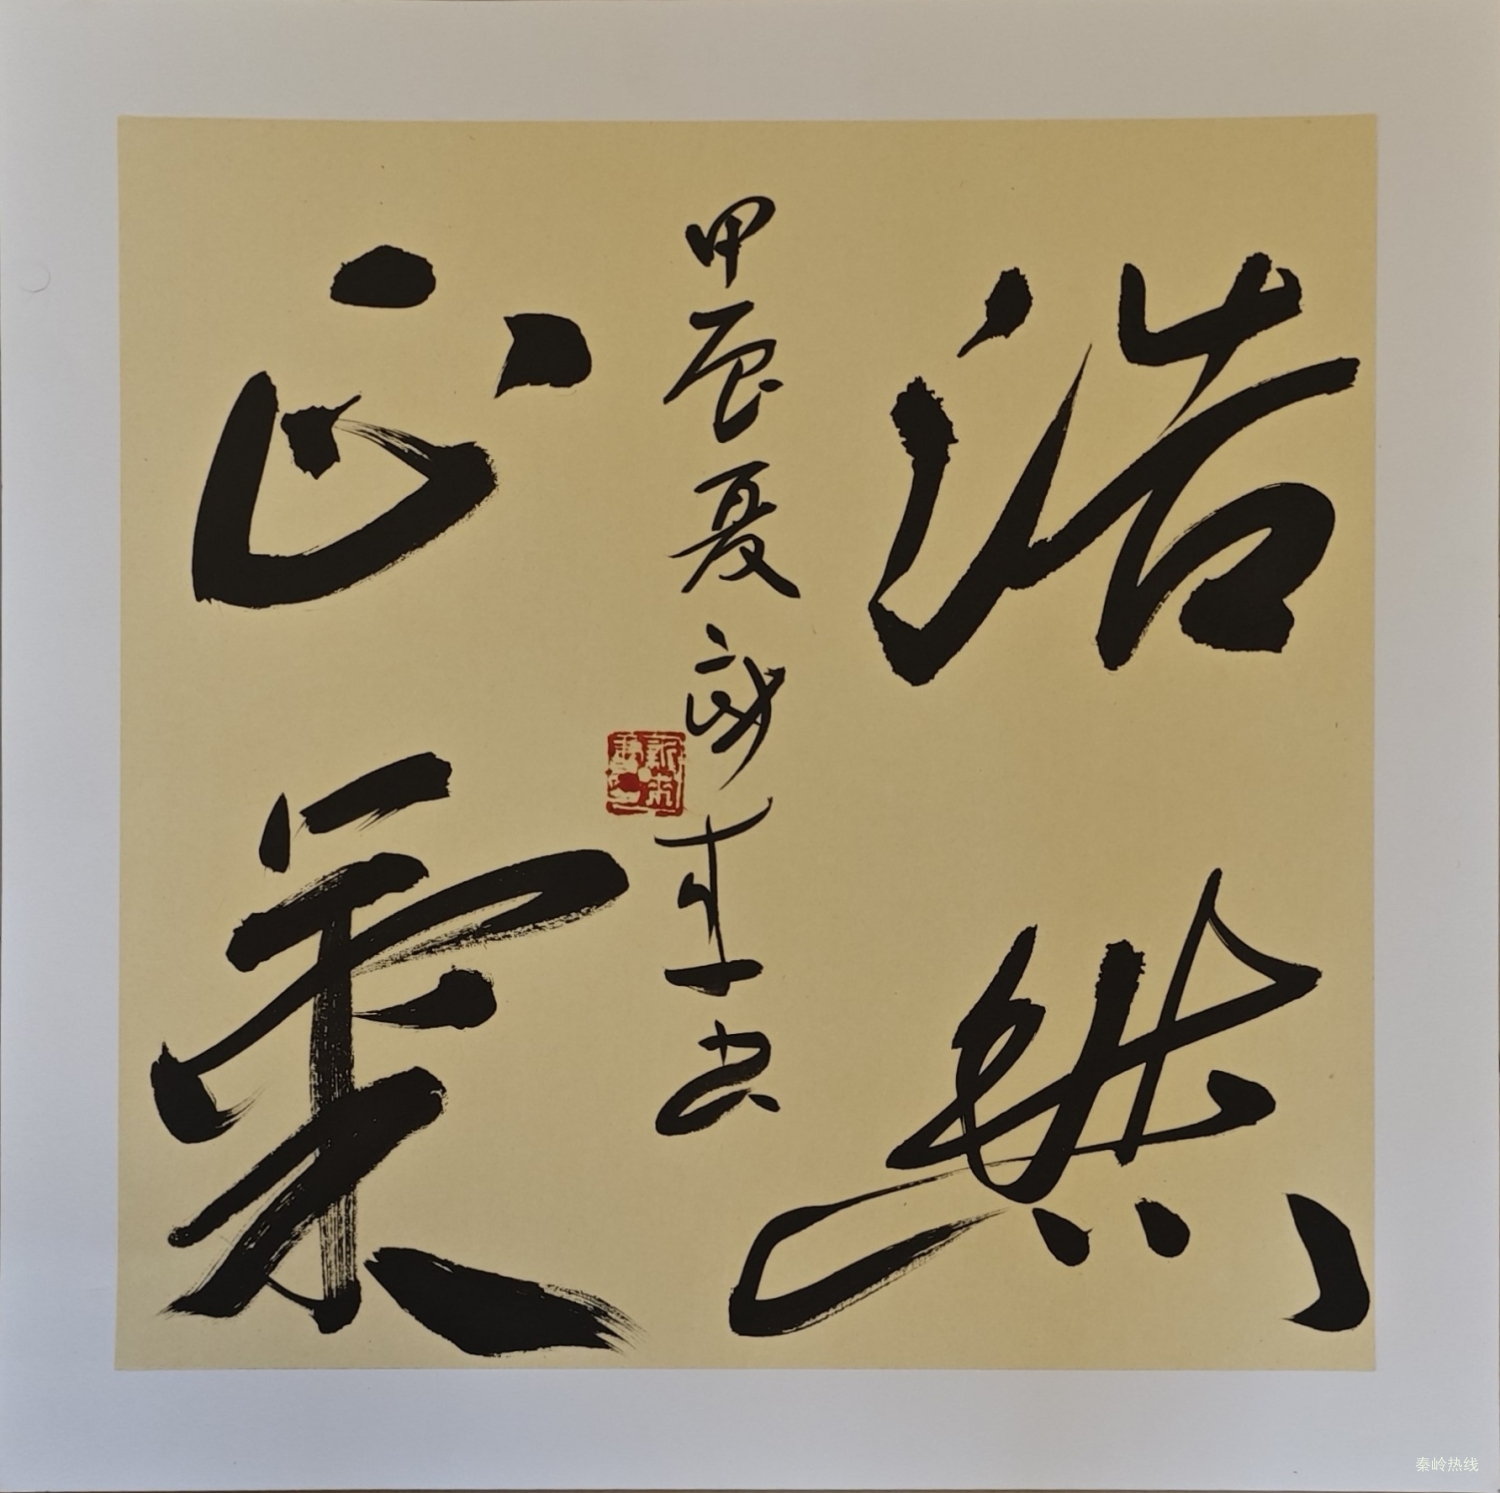 浩然
正氣
甲辰夏 书
秦岭热线